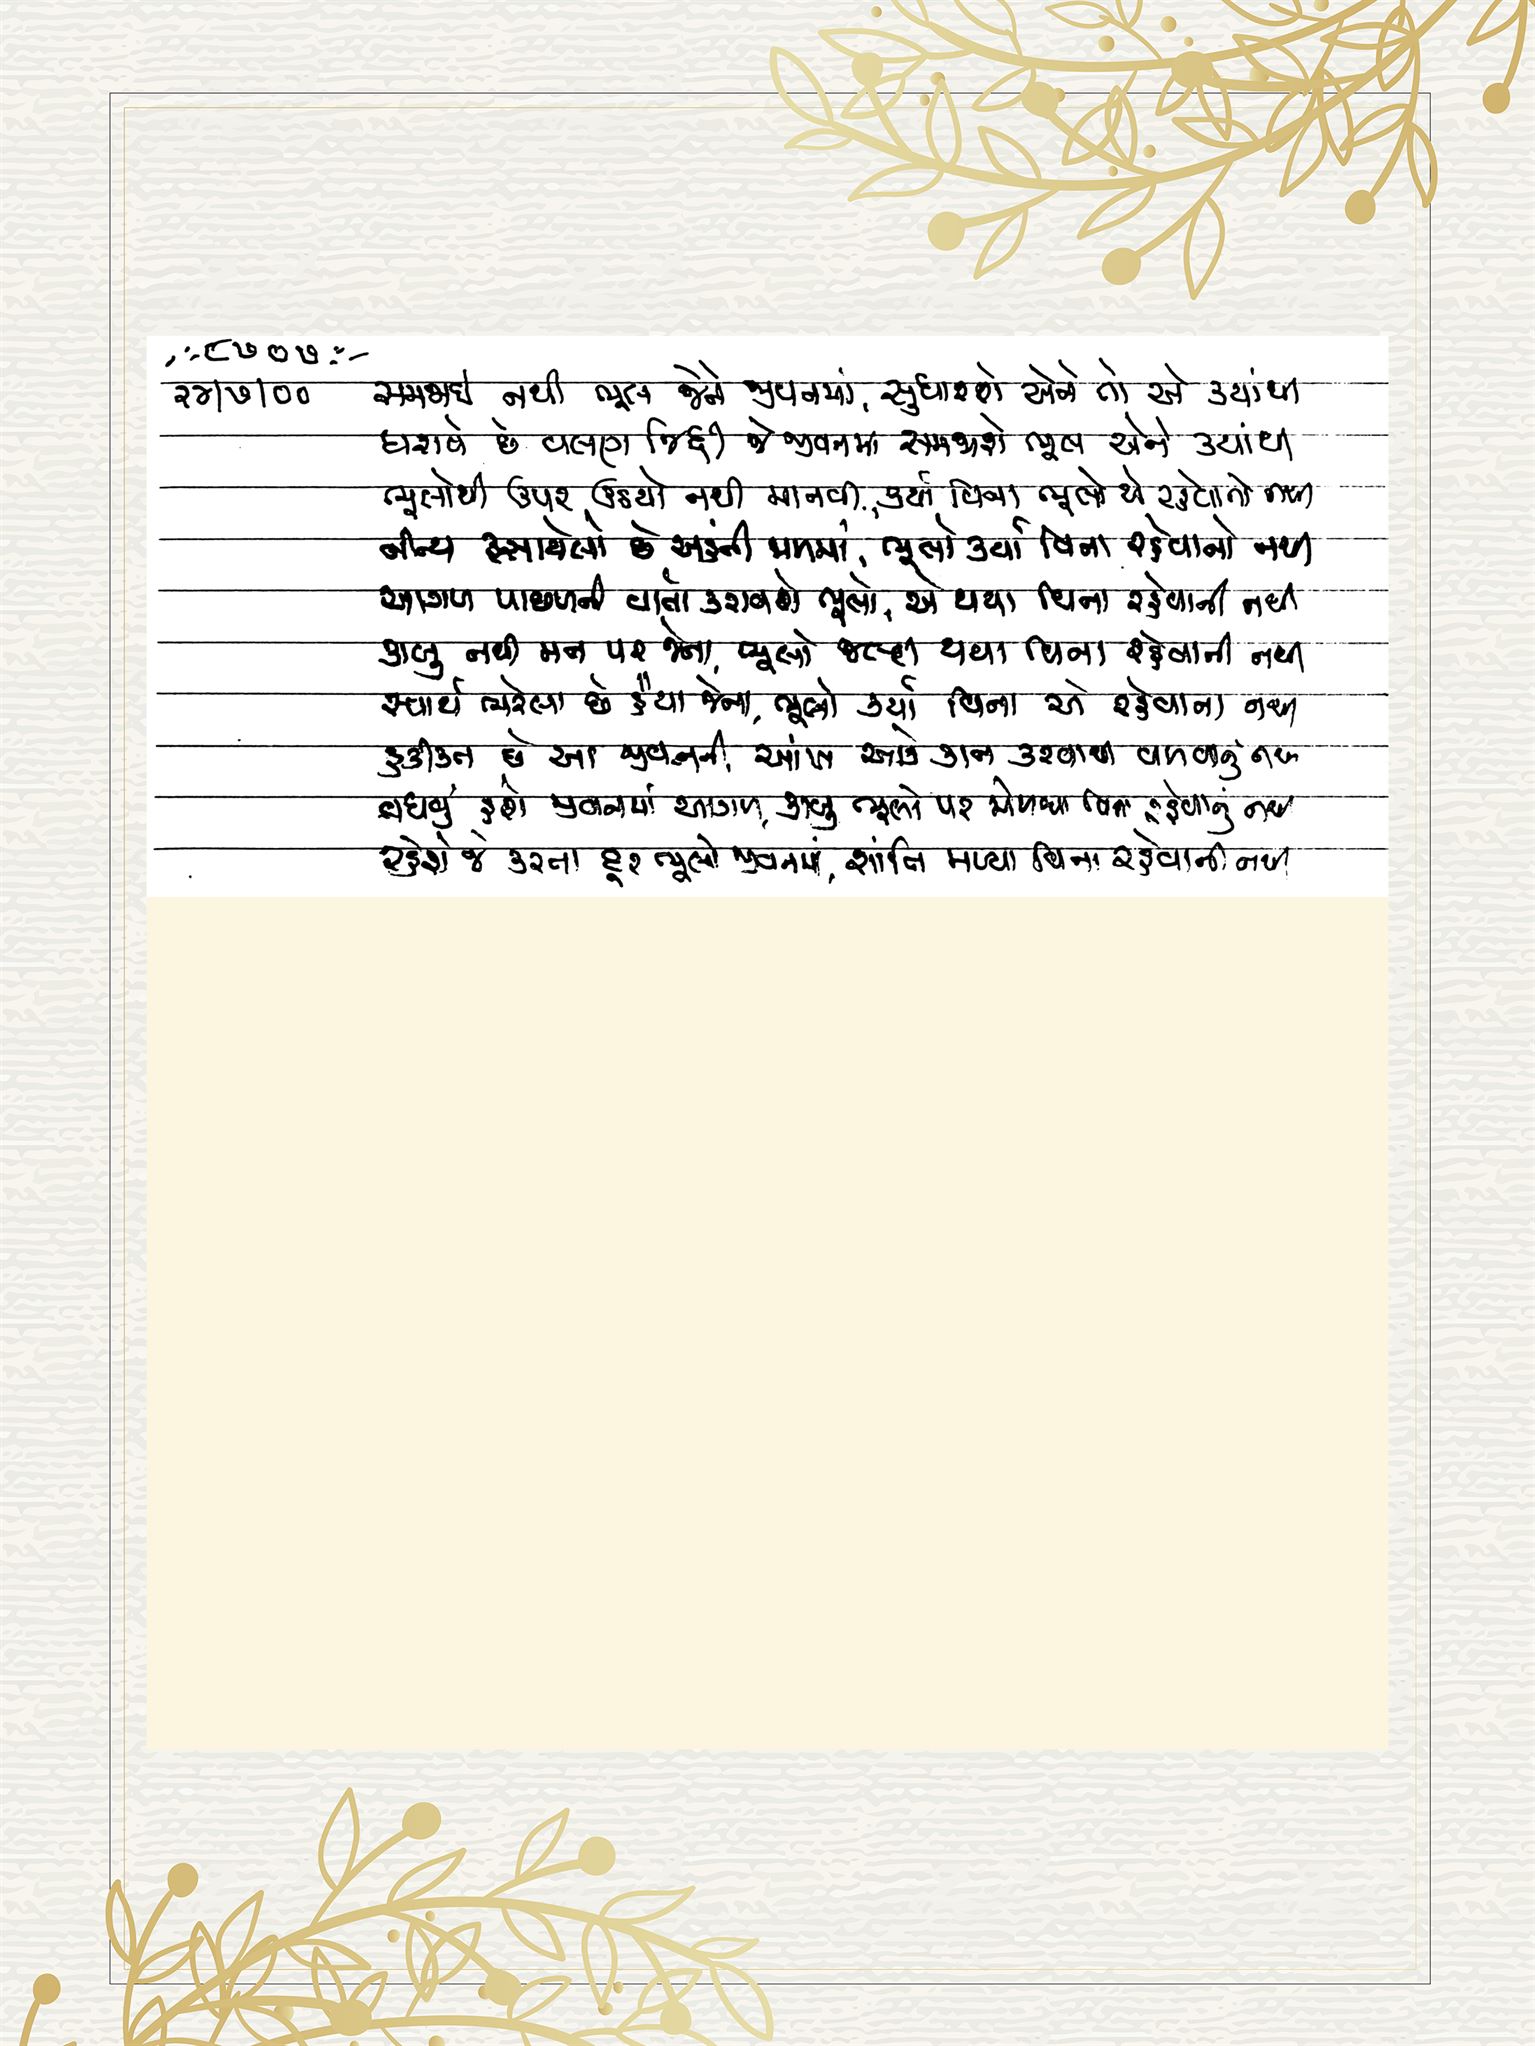 ૮૭૦૭
૨૪/૭/૦૦ સમજાઈ નથી ભૂલ જેને જીવનમાં, સુધારશે એને તો એ ક્યાંથી
ધરાવે છે વલણ જિદ્દી જે જીવનમાં સમજાશે ભૂલ એને ક્યાંથી
ભૂલોથી ઉપર ઉઠયો નથી માનવી, કર્યા વિના ભૂલો એ રહેવાનો નથી
નીત્ય ફસાયેલો છે અહંની જાળમાં, ભૂલો કર્યા વિના રહેવાનો નથી
આગળ પાછળની વાતો કરાવશે ભૂલો, એ થયા વિના રહેવાની નથી
કાબુ નથી મન પર જેના, ભૂલો જલ્દી થયા વિના રહેવાની નથી
સ્વાર્થ ભરેલા છે હૈયા જેના, ભૂલો કર્યા વિના એ રહેવાના નથી
હકીકત છે આ જીવનની, આંખ આડે કાન કરવાથી વળવાનું નથી
વધવું હશે જીવનમાં આગળ, કાબુ ભૂલો પર મેળવ્યા વિના રહેવાનું નથી
રહેશે જે કરતા દૂર ભૂલો જીવનમાં, શાંતિ મળ્યા વિના રહેવાની નથી